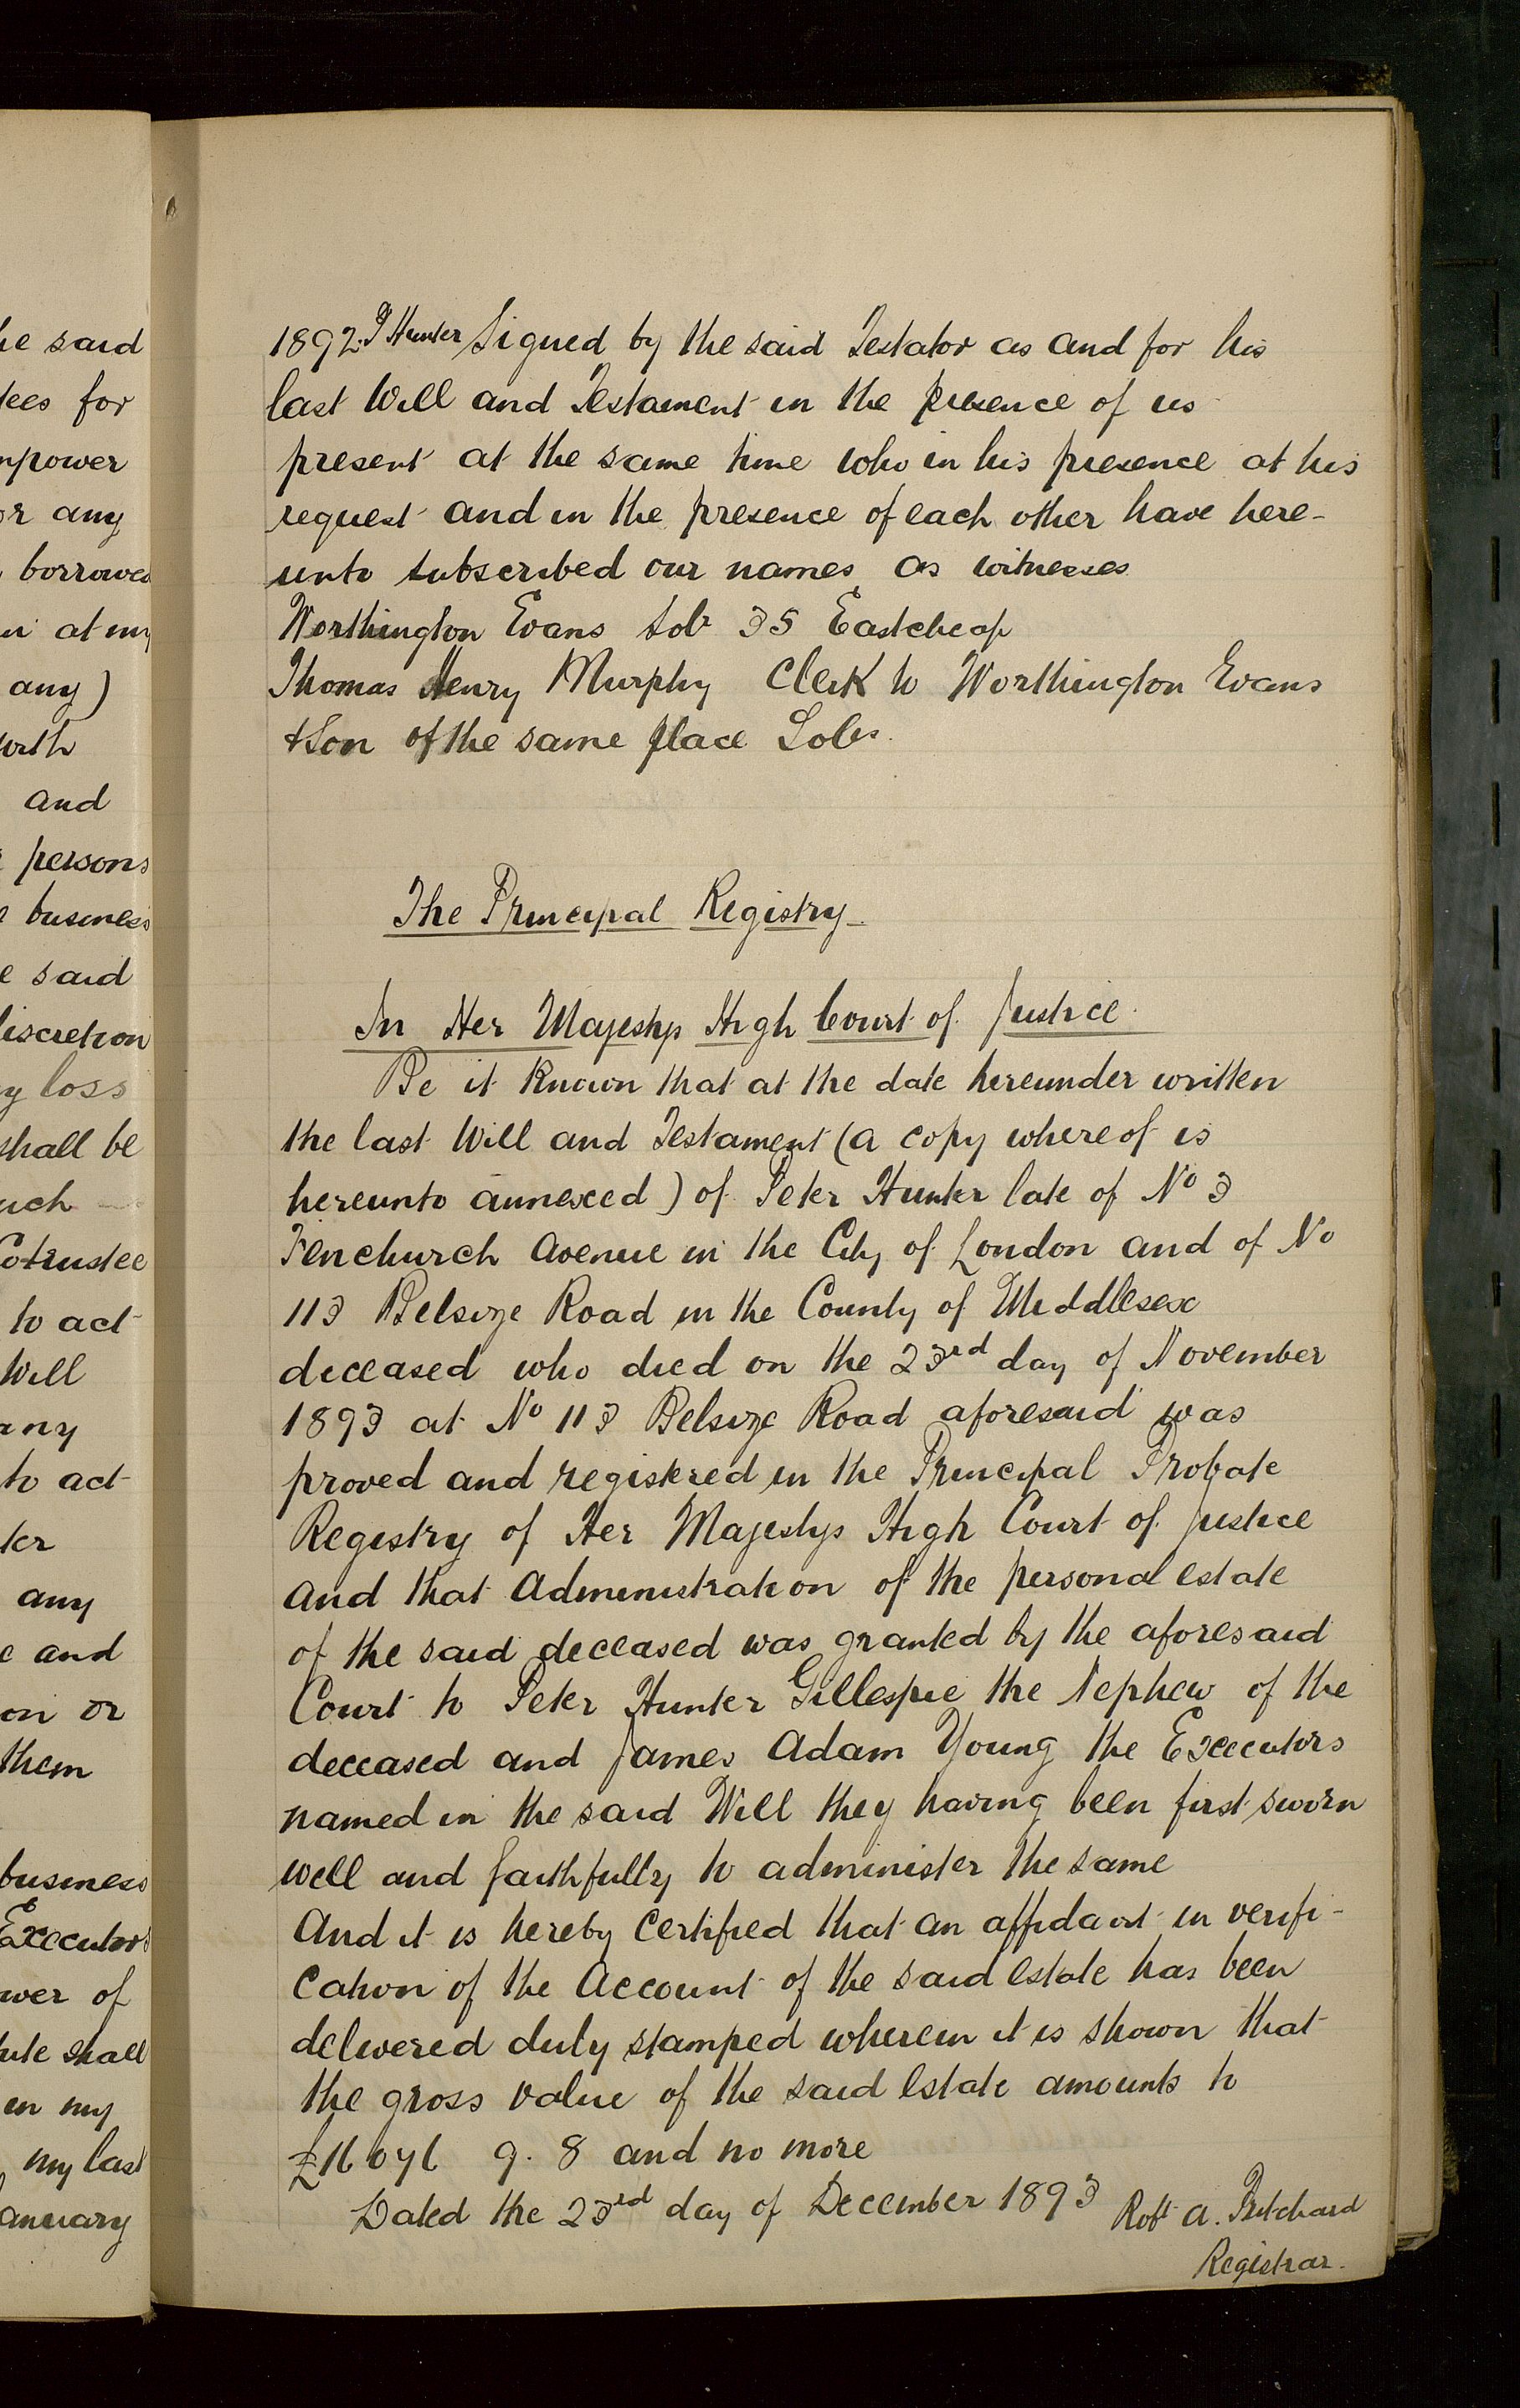 he said
tees for
mpower
or any
borrowed
at my
any)
with
and
persons
business
e said
discretion
y loss
shall be
uch
Cotrustee
to act
Will
any
to act
ter
any
e and
on or
them
business
Executors
wer of
tute shall
in my
my last
anuary
1892. P Hunter Signed by the said Testator as and for his
last Will and Testament in the presence of us
present at the same time who in his presence at his
request and in the presence of each other have here-
unto subscribed our names as witnesses
Worthington Evans Solr 35 Eastcheap
Thomas Henry Murphy Clerk to Worthington Evans
& Son of the same place Solrs.
The Principal Registry
In Her Majestys High Court of Justice.
Be it Known that at the date hereunder written
the last Will and Testament (a copy whereof is
hereunto annexed) of Peter Hunter late of No 3
Fenchurch Avenue in the City of London and of No
113 Belsize Road in the County of Middlesex
deceased who died on the 23rd day of November
1893 at No 113 Belsize Road aforesaid was
proved and registered in the Principal Probate
Registry of Her Majestys High Court of Justice
and that Administration of the personal estate
of the said deceased was granted by the aforesaid
Court to Peter Hunter Gillespie the Nephew of the
deceased and James Adam Young the Executors
named in the said Will they having been first sworn
well and faithfully to administer the same
And it is hereby Certified that an affidavit in verifi-
cation of the Account of the said estate has been
delivered duly stamped wherein it is shown that
the gross value of the said Estate amounts to
9. 8 and no more
Dated the 23rd day of December 1893 Robt A. Pritchard
Registrar.